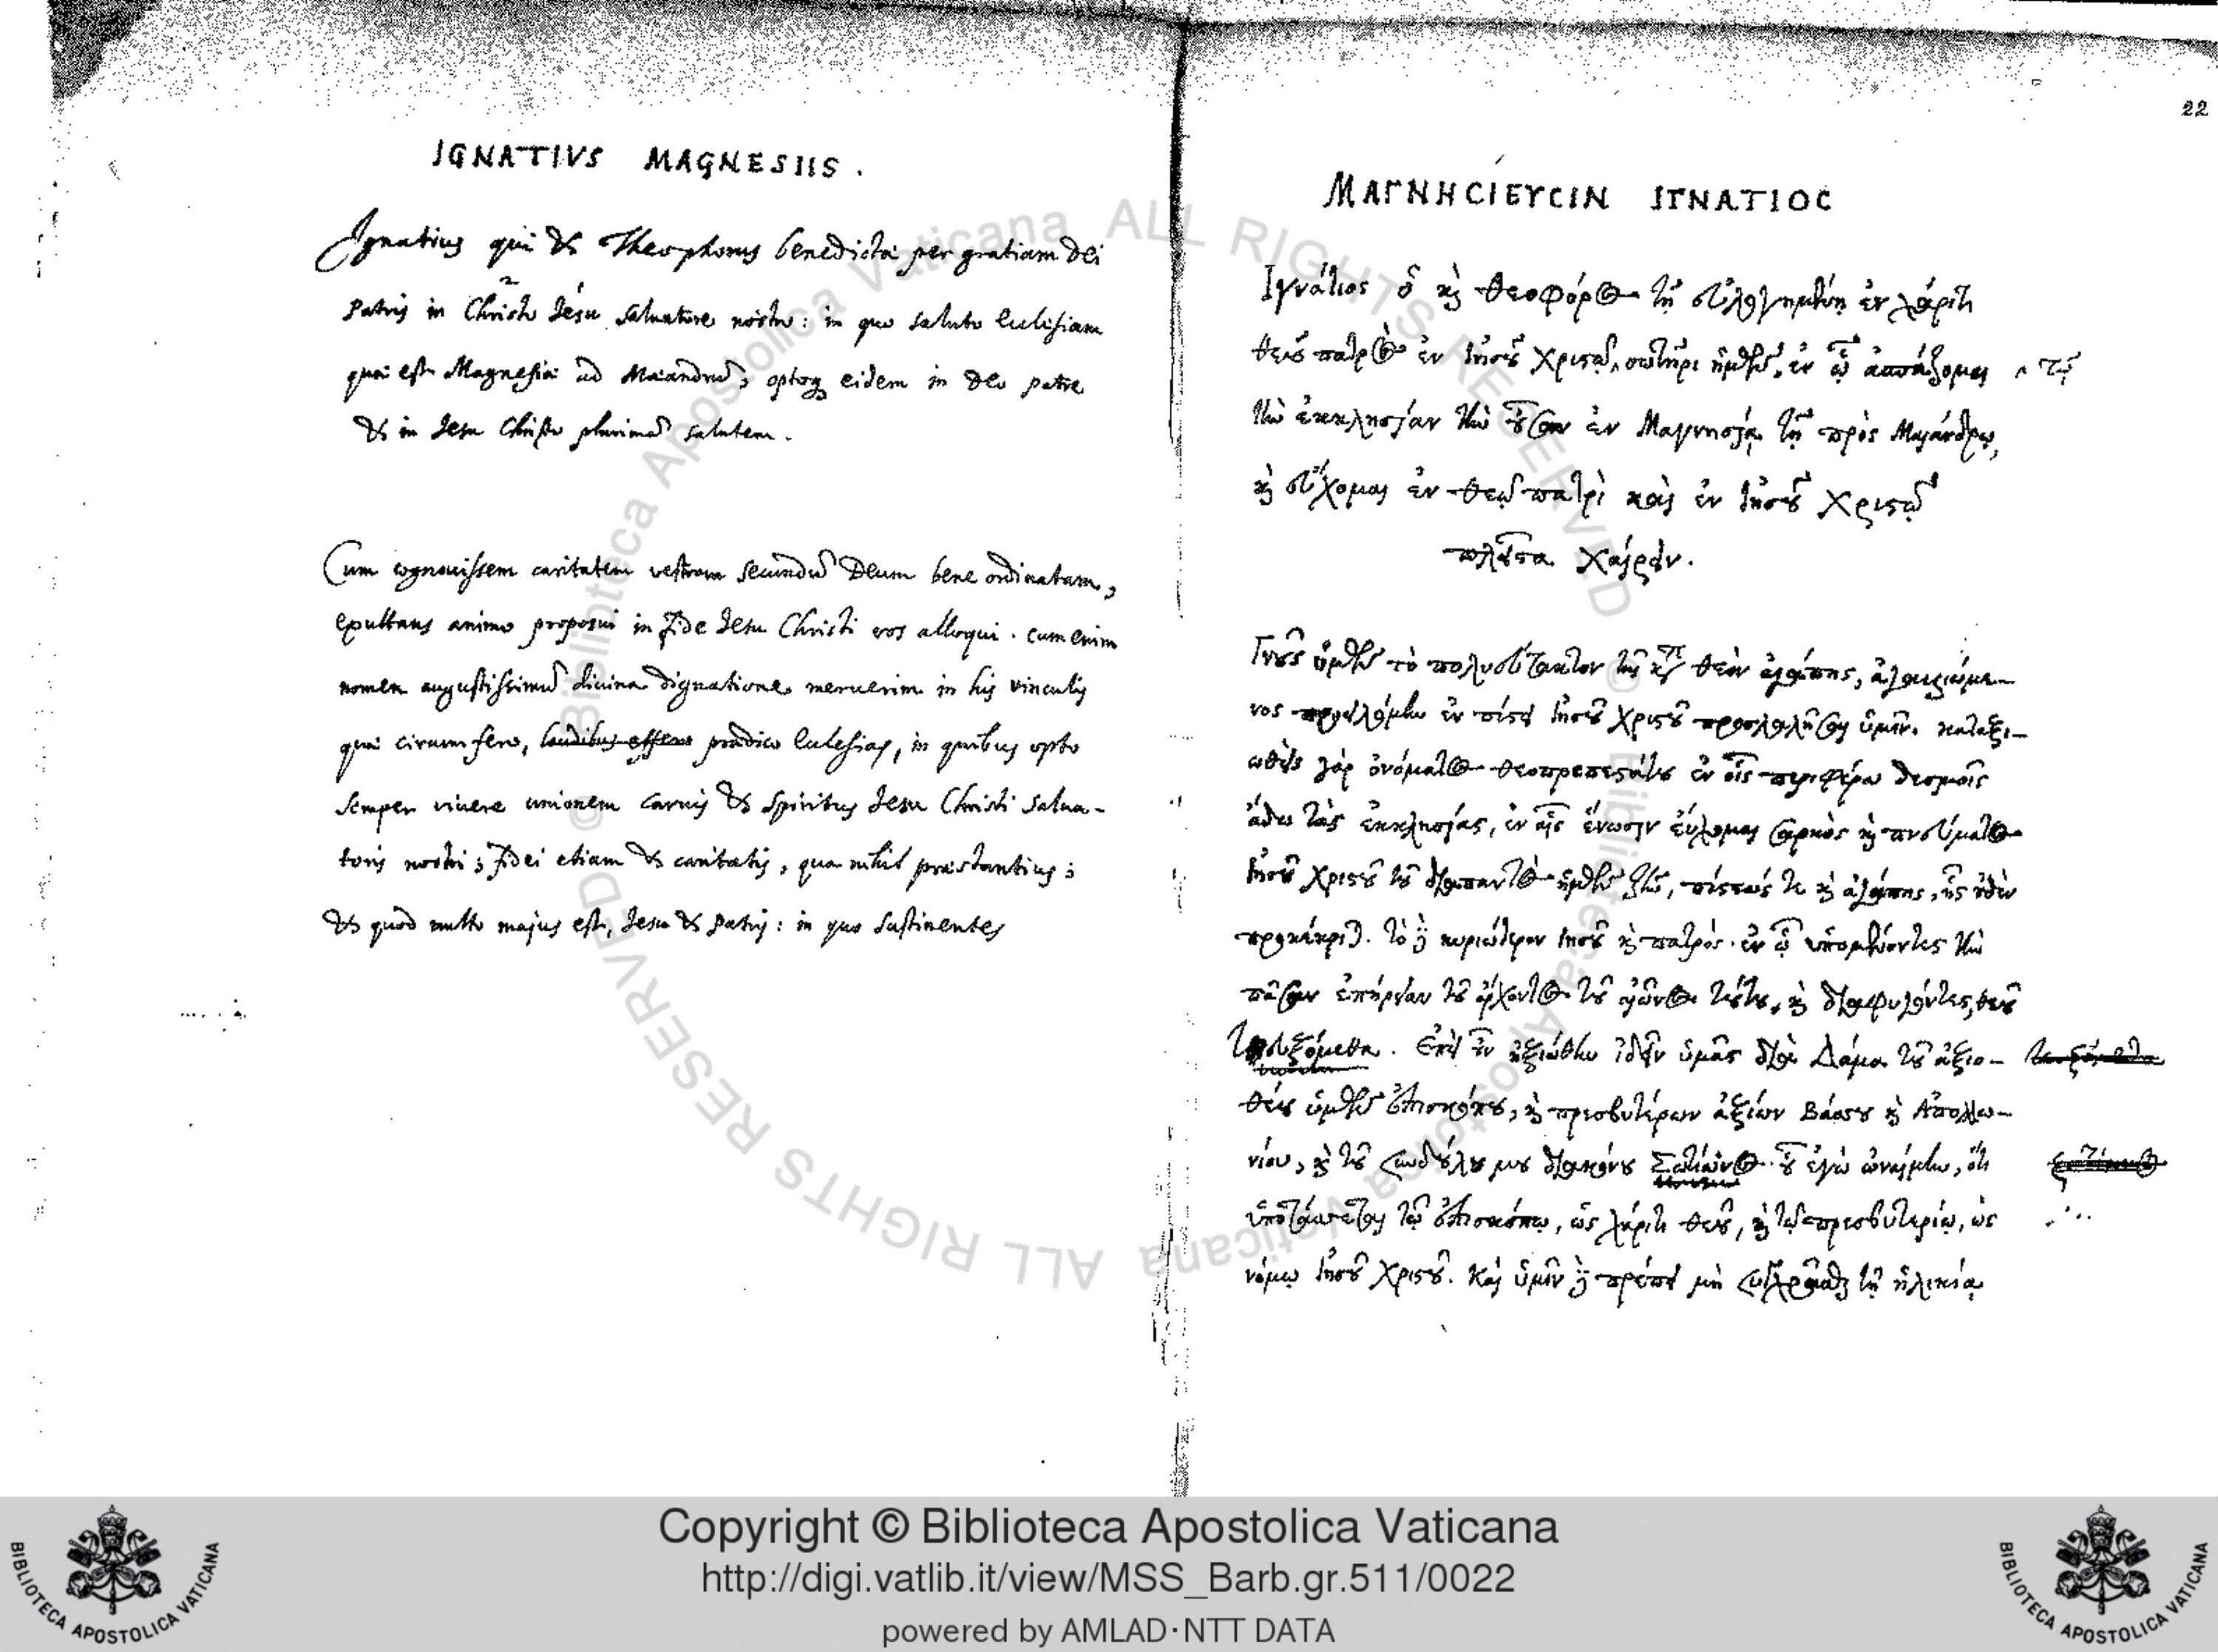 IGNATIVS MAGNESIIS.
Ignatius qui & Theophorus benedictæ per gratiam Dei
Patris in Christo Iesu salvatore nostro: in quo saluto Ecclesiam
quæ est Magnesiæ ad Mæandrum, optoq; eidem in Deo patre
& in Iesu Christo plurimam salutem.
Cum cognovissem caritatem vestram secundum Deum bene ordinatam,
exultans animo proposui in Fide Iesu Christi vos alloqui. cum enim
nomen augustissimum divina dignatione meruerim in his vinculis
quæ circumfero, laudibus effero prædico Ecclesias, in quibus opto
semper vivere unionem carnis & spiritus Iesu Christi salva-
toris nostri; Fidei etiam & caritatis, qua nihil præstantius;
& quod multo majus est, Iesu & Patris: in quo sustinentes
22
ΜΑΓΝΗCΙΕΥCΙΝ ΙΓΝΑΤΙΟC
Ἰγνάτιος ὁ καὶ θεοφόρος τῇ εὐλογημένῃ ἐν χάριτι
θεοῦ πατρὸς ἐν Ἰησοῦ Χριστῷ σωτῆρι ἡμῶν, ἐν ᾧ ἀσπάζομαι
τὴν ἐκκλησίαν τὴν οὖσαν ἐν Μαγνησίᾳ τῇ πρὸς Μαιάνδρῳ,
καὶ εὔχομαι ἐν θεῷ πατρὶ καὶ ἐν Ἰησοῦ Χριστῷ
πλεῖστα χαίρειν.
Γνοὺς ὑμῶν τὸ πολυεύτακτον τῆς κατὰ θεὸν ἀγάπης, ἀγαλλιώμε-
νος προειλόμην ἐν πίστει Ἰησοῦ Χριστοῦ προσλαλῆσαι ὑμῖν. καταξι-
ωθεὶς γὰρ ὀνόματος θεοπρεπεστάτου ἐν οἷς περιφέρω δεσμοῖς
ᾄδω τὰς ἐκκλησίας, ἐν αἷς ἕνωσιν εὔχομαι σαρκὸς καὶ πνεύματος
Ἰησοῦ Χριστοῦ τοῦ διαπαντὸς ἡμῶν ζῆν, πίστεώς τε καὶ ἀγάπης, ἧς οὐδὲν
προκέκριται. τὸ δὲ κυριώτερον Ἰησοῦ καὶ πατρός. ἐν ᾧ ὑπομένοντες τὴν
πᾶσαν ἐπήρειαν τοῦ ἄρχοντος τοῦ αἰῶνος τούτου, καὶ διαφυγόντες, θεοῦ
τευξόμεθα. Ἐπεὶ οὖν ἠξιώθην ἰδεῖν ὑμᾶς διὰ Δάμα τοῦ ἀξιο-
θέου ὑμῶν ἐπισκόπου, καὶ πρεσβυτέρων ἀξίων Βάσσου καὶ Ἀπολλω-
νίου, καὶ τοῦ συνδούλου μου διακόνου Σωτίωνος. οὗ ἐγὼ ὀναίμην, ὅτι
ὑποτάσσεται τῷ ἐπισκόπῳ, ὡς χάριτι θεοῦ, καὶ τῷ πρεσβυτερίῳ, ὡς
νόμῳ Ἰησοῦ Χριστοῦ. Καὶ ὑμῖν δὲ πρέπει μὴ συγχρᾶσθαι τῇ ἡλικίᾳ
© Biblioteca Apostolica Vaticana ALL RIGHTS RESERVED
© Biblioteca Apostolica Vaticana ALL RIGHTS RESERVED
Copyright © Biblioteca Apostolica Vaticana
http://digi.vatlib.it/view/MSS_Barb.gr.511/0022
powered by AMLAD·NTT DATA
BIBLIOTECA APOSTOLICA VATICANA
BIBLIOTECA APOSTOLICA VATICANA